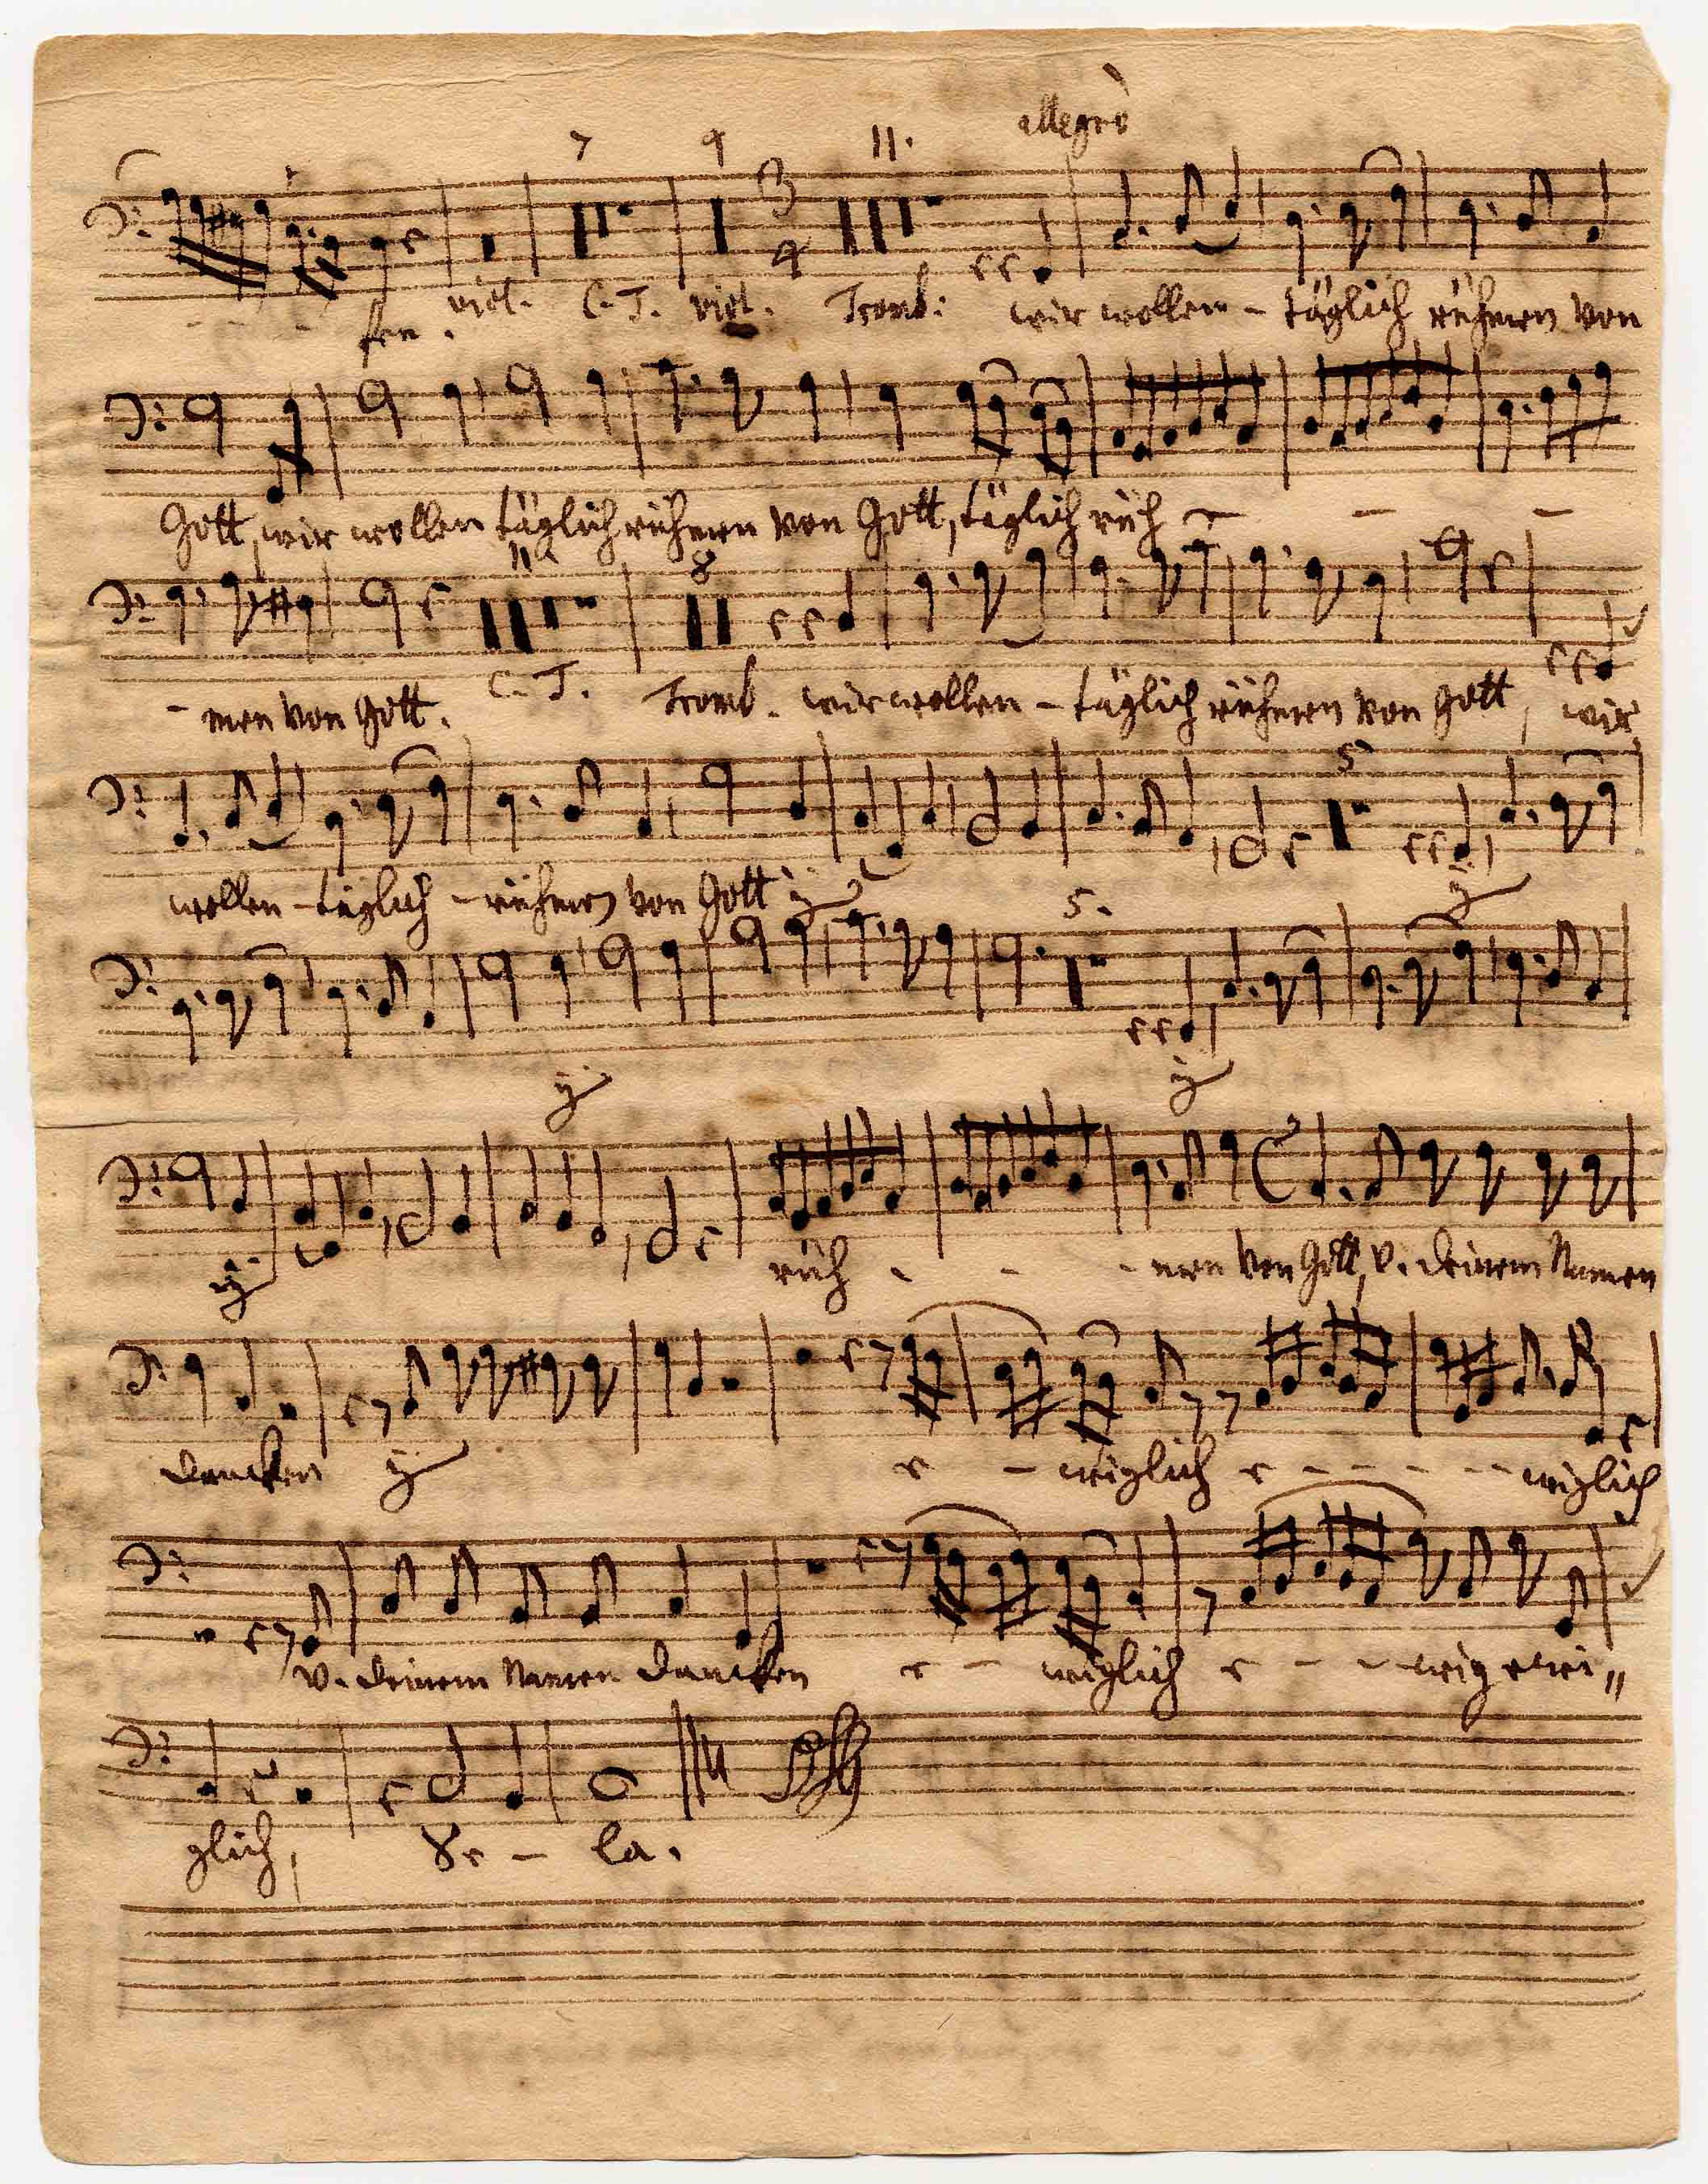 allegro
7 9 11.
3
4
- - - fen. viol. C. T. viol. Tromb: wir wollen - täglich rühmen von
Gott, wir wollen täglich rühmen von Gott, täglich rüh - - -
11. 8
- men von Gott. C. T. Tromb. wir wollen - täglich rühmen von Gott, wir
5
wollen - täglich - rühmen von Gott ij ij
5.
ij ij
3
ij rüh - - - men von Gott, v. deinem Namen
dancken ij e - wiglich e - - - - - wiglich
v. deinem Namen dancken e - wiglich e - - - wig ewi〃
glich, Se - la.